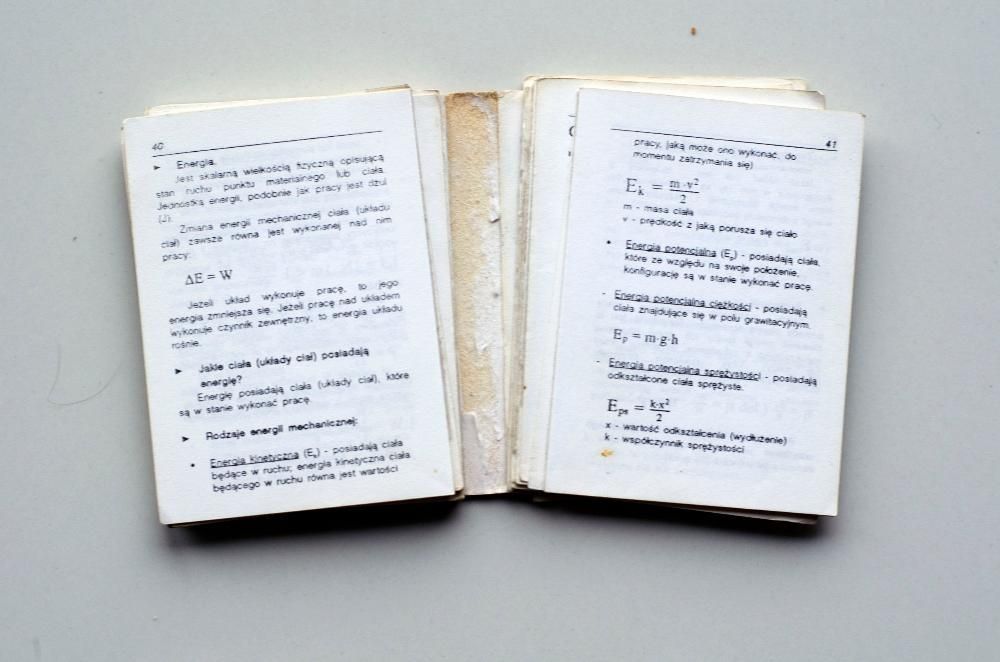 40
► Energia.
Jest skalarną wielkością fizyczną opisującą
stan ruchu punktu materialnego lub ciała.
Jednostką energii, podobnie jak pracy jest dżul
(J).
Zmiana energii mechanicznej ciała (układu
ciał) zawsze równa jest wykonanej nad nim
pracy:
ΔE = W
Jeżeli układ wykonuje pracę, to jego
energia zmniejsza się. Jeżeli pracę nad układem
wykonuje czynnik zewnętrzny, to energia układu
rośnie.
► Jakie ciała (układy ciał) posiadają
energię?
Energię posiadają ciała (układy ciał), które
są w stanie wykonać pracę.
► Rodzaje energii mechanicznej:
• Energia kinetyczna (Eₖ) - posiadają ciała
będące w ruchu; energia kinetyczna ciała
będącego w ruchu równa jest wartości
41
pracy, jaką może ono wykonać, do
momentu zatrzymania się)
Eₖ = m·v²/2
m - masa ciała
v - prędkość z jaką porusza się ciało
• Energia potencjalna (Eₚ) - posiadają ciała,
które ze względu na swoje położenie,
konfigurację są w stanie wykonać pracę.
- Energia potencjalna ciężkości - posiadają
ciała znajdujące się w polu grawitacyjnym.
Eₚ = m·g·h
- Energia potencjalna sprężystości - posiadają
odkształcone ciała sprężyste.
Eₚₛ = k·x²/2
x - wartość odkształcenia (wydłużenie)
k - współczynnik sprężystości